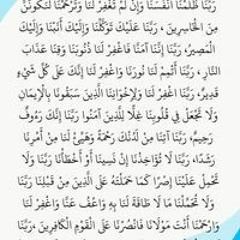 رَبَّنَا ظَلَمْنَا أَنْفُسَنَا وَإِنْ لَمْ تَغْفِرْ لَنَا وَتَرْحَمْنَا لَنَكُونَنَّ
مِنَ الْخَاسِرِينَ ، رَبَّنَا عَلَيْكَ تَوَكَّلْنَا وَإِلَيْكَ أَنَبْنَا وَإِلَيْكَ
الْمَصِيرُ، رَبَّنَا إِنَّنَا آمَنَّا فَاغْفِرْ لَنَا ذُنُوبَنَا وَقِنَا عَذَابَ
النَّارِ ، رَبَّنَا أَتْمِمْ لَنَا نُورَنَا وَاغْفِرْ لَنَا إِنَّكَ عَلَى كُلِّ شَيْءٍ
قَدِيرٌ، رَبَّنَا اغْفِرْ لَنَا وَلِإِخْوَانِنَا الَّذِينَ سَبَقُونَا بِالْإِيمَانِ
وَلَا تَجْعَلْ فِي قُلُوبِنَا غِلًّا لِلَّذِينَ آمَنُوا رَبَّنَا إِنَّكَ رَءُوفٌ
رَحِيمٌ، رَبَّنَا آتِنَا مِنْ لَدُنْكَ رَحْمَةً وَهَيِّئْ لَنَا مِنْ أَمْرِنَا
رَشَدًا، رَبَّنَا لَا تُؤَاخِذْنَا إِنْ نَسِينَا أَوْ أَخْطَأْنَا رَبَّنَا وَلَا
تَحْمِلْ عَلَيْنَا إِصْرًا كَمَا حَمَلْتَهُ عَلَى الَّذِينَ مِنْ قَبْلِنَا رَبَّنَا
وَلَا تُحَمِّلْنَا مَا لَا طَاقَةَ لَنَا بِهِ وَاعْفُ عَنَّا وَاغْفِرْ لَنَا
وَارْحَمْنَا أَنْتَ مَوْلَانَا فَانْصُرْنَا عَلَى الْقَوْمِ الْكَافِرِينَ ،رَبَّنَا